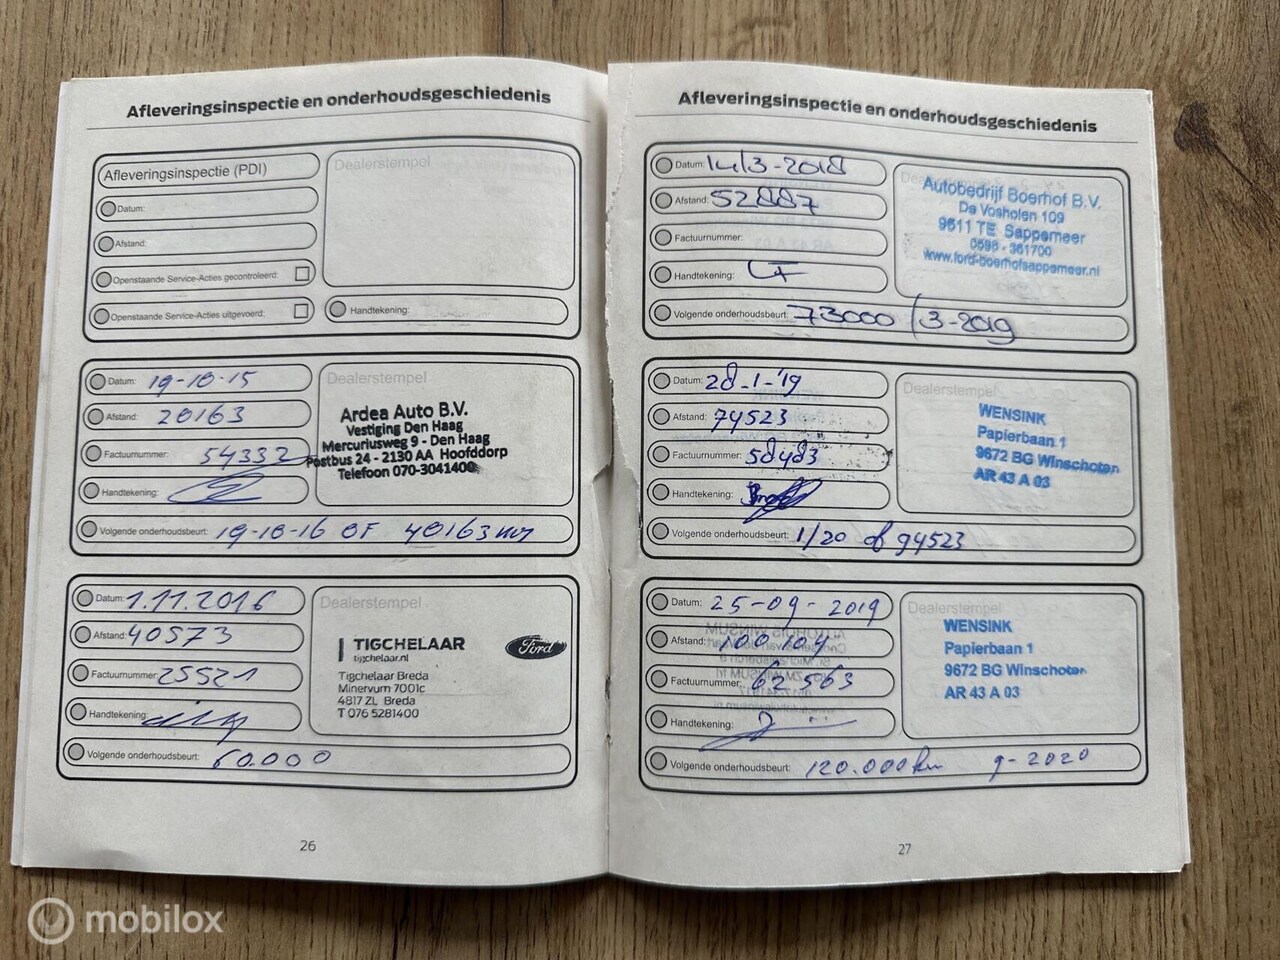 Afleveringsinspectie en onderhoudsgeschiedenis
Afleveringsinspectie (PDI)
Dealerstempel
Datum:
Afstand:
Openstaande Service-Acties gecontroleerd:
Openstaande Service-Acties uitgevoerd:
Handtekening:
Datum: 19-10-15
Afstand: 20163
Factuurnummer: 54332
Handtekening:
Volgende onderhoudsbeurt: 19-10-16 OF 40163 km
Dealerstempel
Ardea Auto B.V.
Vestiging Den Haag
Mercuriusweg 9 - Den Haag
Postbus 24 - 2130 AA Hoofddorp
Telefoon 070-3041400
Datum: 1.11.2016
Afstand: 40573
Factuurnummer: 25521
Handtekening:
Volgende onderhoudsbeurt: 60.000
Dealerstempel
TIGCHELAAR
tigchelaar.nl
Ford
Tigchelaar Breda
Minervum 7001c
4817 ZL Breda
T 076 5281400
26
Afleveringsinspectie en onderhoudsgeschiedenis
Datum: 14/3-2018
Afstand: 52887
Factuurnummer:
Handtekening:
Volgende onderhoudsbeurt: 73000 / 3-2019
Autobedrijf Boerhof B.V.
De Vosholen 109
9611 TE Sappemeer
0598 - 361700
www.ford-boerhofsappemeer.nl
Datum: 28-1-'19
Afstand: 74523
Factuurnummer: 58483
Handtekening:
Volgende onderhoudsbeurt: 1/20 of 94523
Dealerstempel
WENSINK
Papierbaan 1
9672 BG Winschoten
AR 43 A 03
Datum: 25-09-2019
Afstand: 100104
Factuurnummer: 62563
Handtekening:
Volgende onderhoudsbeurt: 120.000 km 9-2020
Dealerstempel
WENSINK
Papierbaan 1
9672 BG Winschoten
AR 43 A 03
27
mobilox